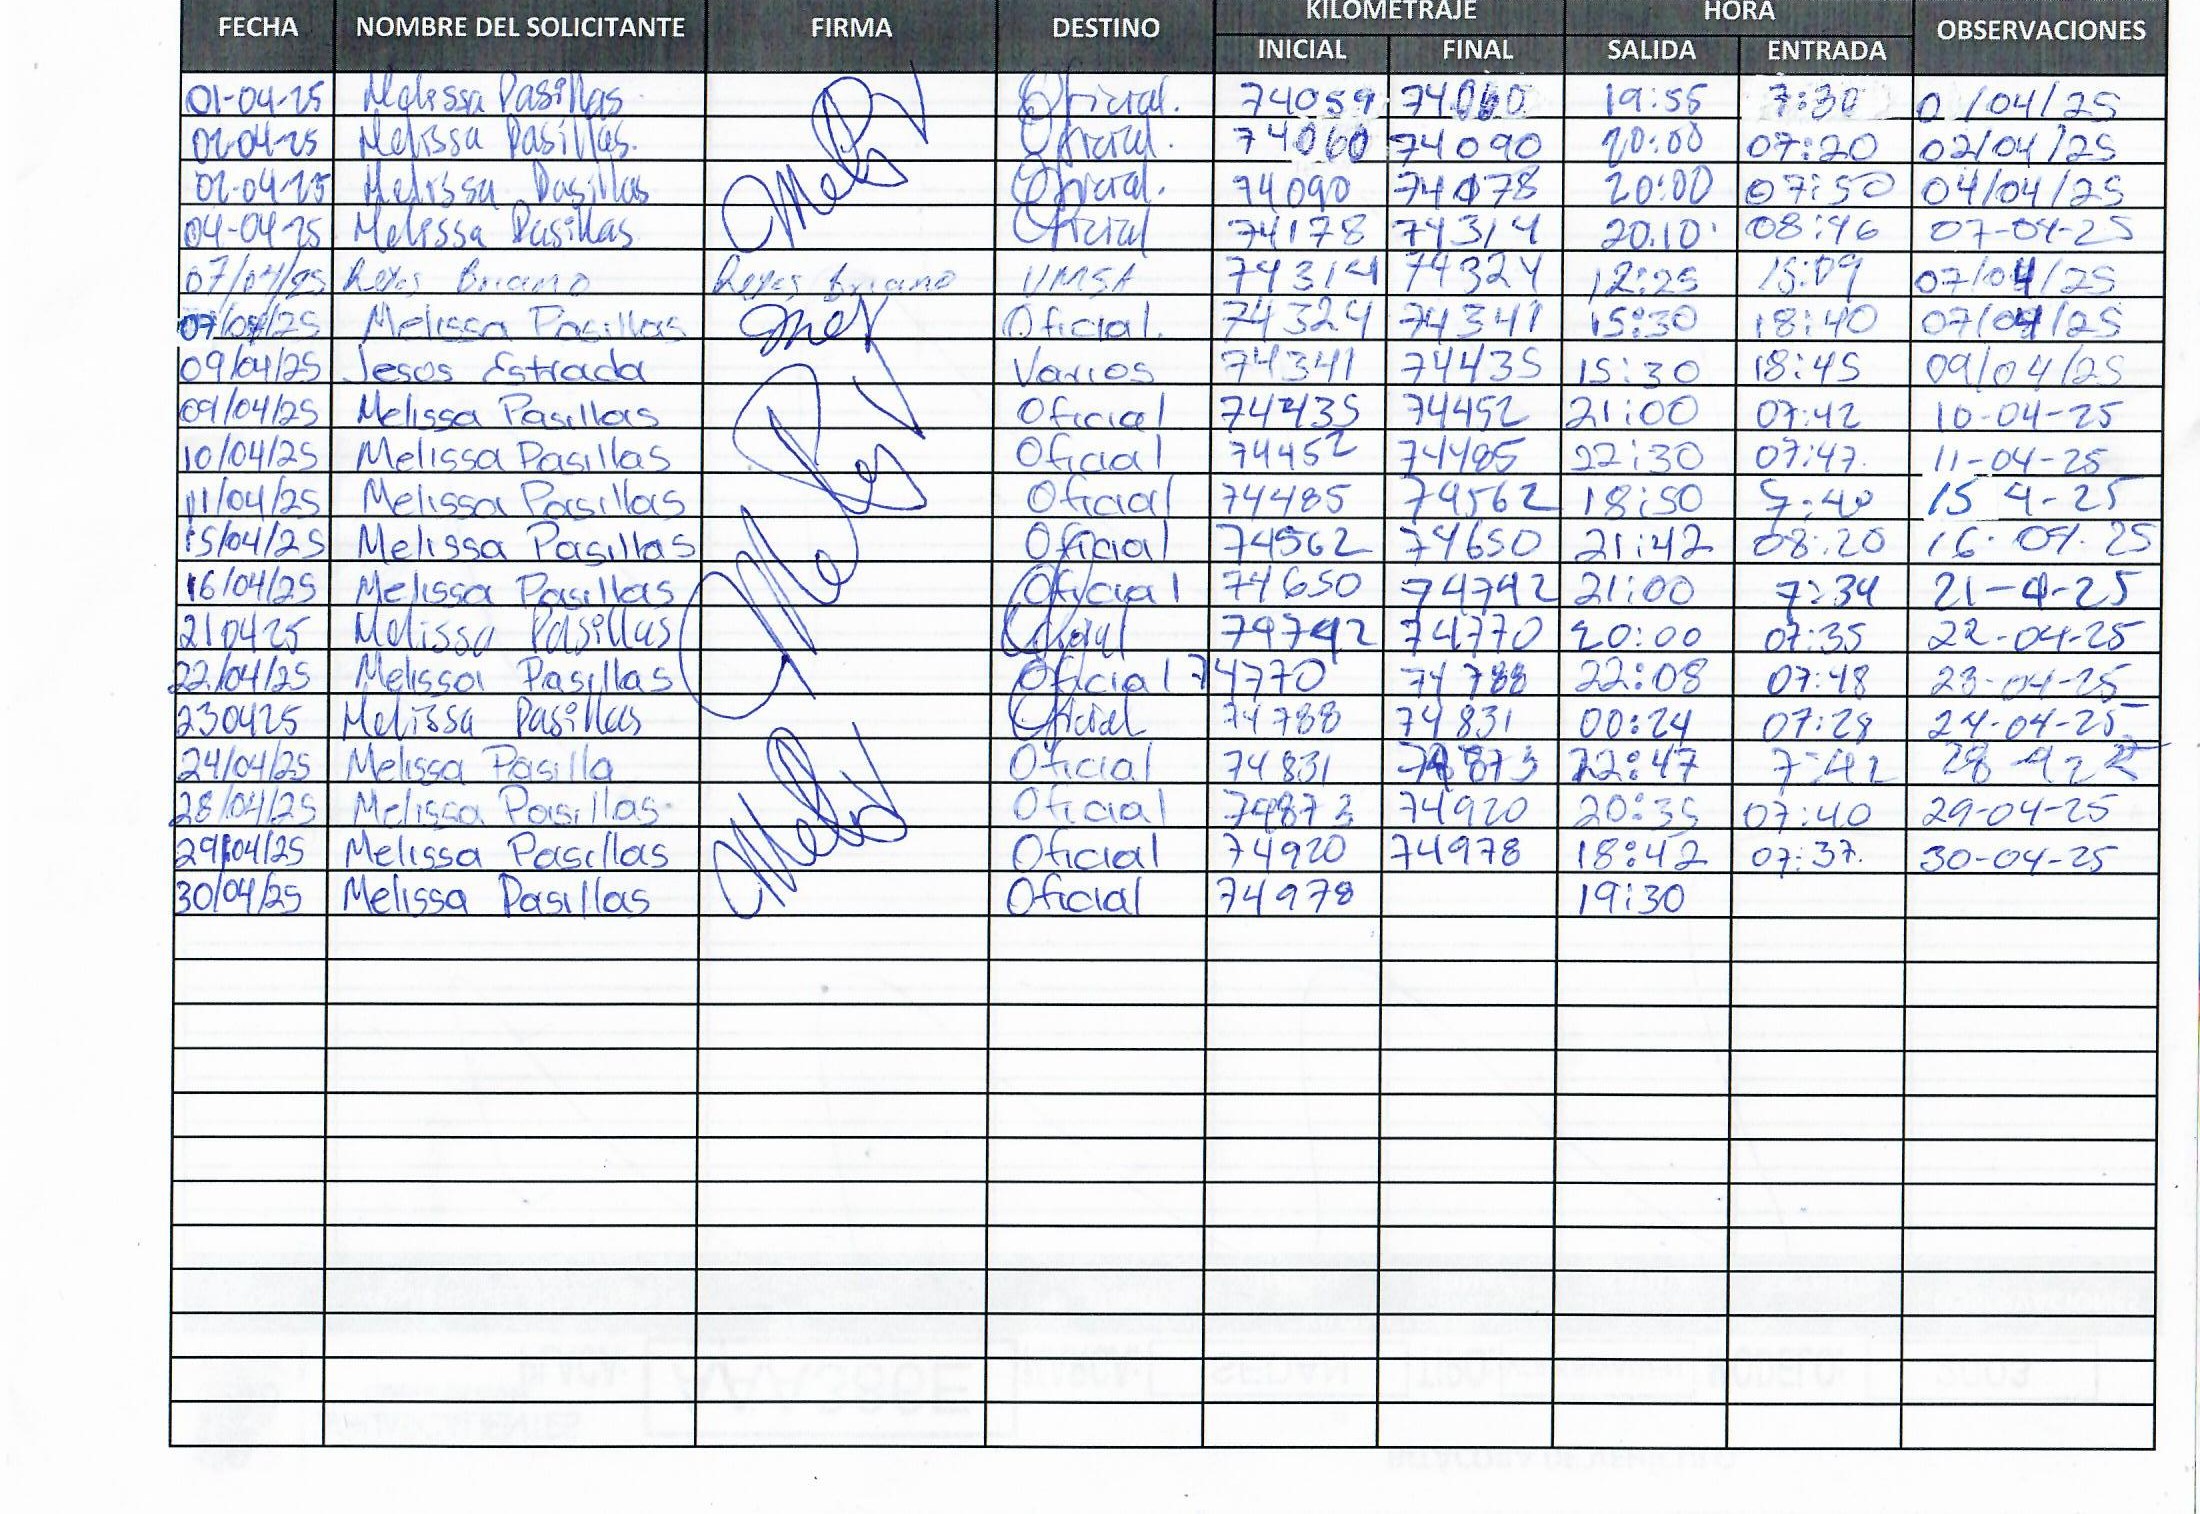 FECHA NOMBRE DEL SOLICITANTE FIRMA DESTINO KILOMETRAJE HORA OBSERVACIONES
INICIAL FINAL SALIDA ENTRADA
01-04-25 Melissa Pasillas Oficial. 74059 74060 19:55 7:30 0/04/25
02-04-25 Melissa Pasillas. Oficial. 74060 74090 20:00 07:20 02/04/25
02-04-25 Melissa Pasillas Oficial. 74090 74178 20:00 07:50 04/04/25
04-04-25 Melissa Pasillas Oficial 74178 74314 20.10 08:46 07-04-25
07/04/25 Reyes Briano Reyes Briano UMSA 74314 74324 12:25 15:09 07/04/25
07/04/25 Melissa Pasillas Oficial. 74324 74341 15:30 18:40 07/04/25
09/04/25 Jesos Estrada Varios 74341 74435 15:30 18:45 09/04/25
09/04/25 Melissa Pasillas Oficial 74435 74452 21:00 07:42 10-04-25
10/04/25 Melissa Pasillas Oficial 74452 74485 22:30 07:47. 11-04-25
11/04/25 Melissa Pasillas Oficial 74485 74562 18:50 7:40 15 4-25
15/04/25 Melissa Pasillas Oficial 74562 74650 21:42 08:20 16-04-25
16/04/25 Melissa Pasillas Oficial 74650 74742 21:00 7:34 21-4-25
210425 Melissa Pasillas Oficial 74742 74770 20:00 07:35 22-04-25
22/04/25 Melissa Pasillas Oficial 74770 74788 22:08 07:48 23-04-25
230425 Melissa Pasillas Oficial 74788 74831 00:24 07:28 24-04-25
24/04/25 Melissa Pasilla Oficial 74831 74873 22:47 7:42
28/04/25 Melissa Pasillas Oficial 74873 74920 20:35 07:40 29-04-25
29/04/25 Melissa Pasillas Oficial 74920 74978 18:42 07:37. 30-04-25
30/04/25 Melissa Pasillas Oficial 74978 19:30